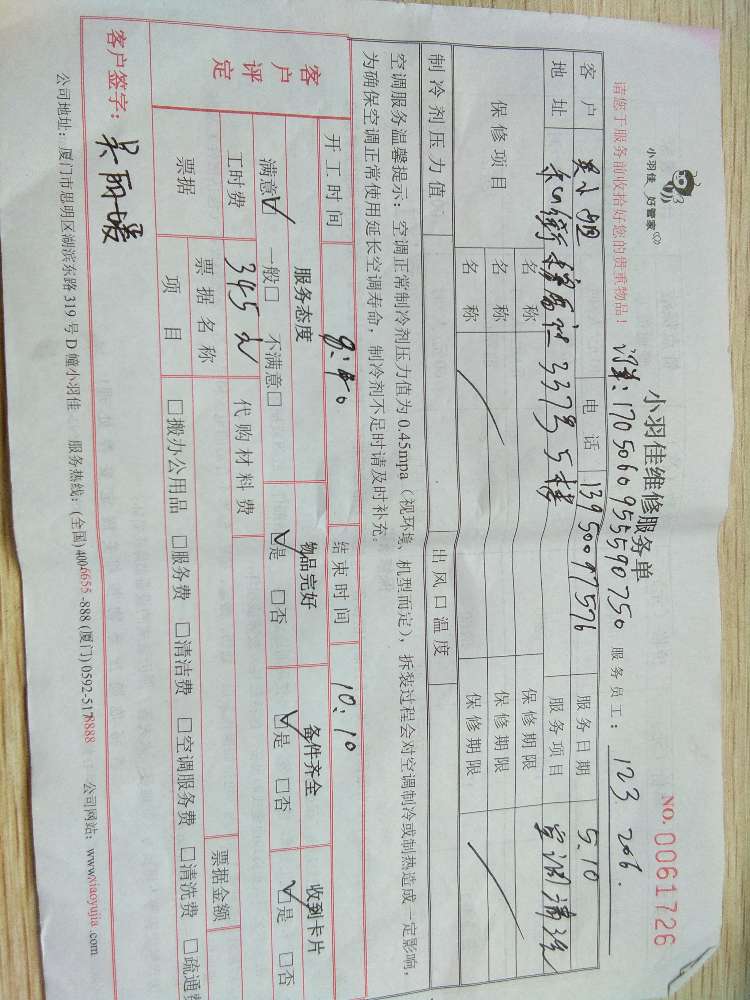 小羽佳 好管家
小羽佳维修服务单
NO. 0061726
请您于服务前收拾好您的贵重物品！
17050609555590750
服务员工： 123 206.
客户 吴小姐 电话 13950097576 服务日期 5.10
地址 337号5楼 服务项目 空调清洗
保修项目 名称 保修期限
名称 保修期限
名称 保修期限
制冷剂压力值 出风口温度
空调服务温馨提示：空调正常制冷剂压力值为0.45mpa（视环境、机型而定），拆装过程会对空调制冷或制热造成一定影响，
为确保空调正常使用延长空调寿命，制冷剂不足时请及时补充。
开工时间 8:40 结束时间 10:10
客户评定 服务态度 物品完好 备件齐全 收到卡片
满意☑ 一般□ 不满意□ ☑是 □否 ☑是 □否 ☑是 □否
工时费 345元 代购材料费
票据 票据名称 票据金额
项目 □搬办公用品 □服务费 □清洁费 □空调服务费 □清洗费 □疏通费
客户签字：
公司地址：厦门市思明区湖滨东路319号D幢小羽佳 服务热线：(全国)4006655-888 (厦门)0592-5178888 公司网站：www.xiaoyujia.com